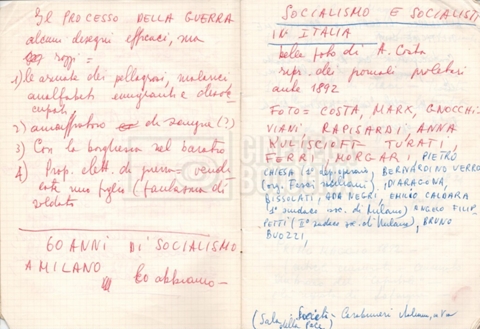 Il PROCESSO DELLA GUERRA
alcuni disegni efficaci, ma
rozzi =
1) le armate dei pellagrosi, malarici
analfabeti emigranti e disoc-
cupati
2) annaffiatoio di sangue (?)
3) Con la borghesia nel baratro
4) Prop. elett. di guerra = vend-
ete mio figlio (fantasma di
soldato
60 ANNI DI SOCIALISMO
A MILANO Lo abbiamo -
SOCIALISMO E SOCIALISTI
IN ITALIA
bella foto di A. Costa
repr. dei giornali proletari
ante 1892
FOTO = COSTA, MARX, GNOCCHI-
VIANI, RAPISARDI, ANNA
KULISCIOFF TURATI,
FERRI, MORGARI, PIETRO
CHIESA (1° dep. operaio), BERNARDINO VERRO
(org. Fasci siciliani), D'ARAGONA,
BISSOLATI, ADA NEGRI, EMILIO CALDARA
1° sindaco soc. di Milano) ANGELO FILIP-
PETTI (II° sindaco soc. di Milano), BRUNO
BUOZZI,
(Sala: Società - Carabinieri
della Pace)